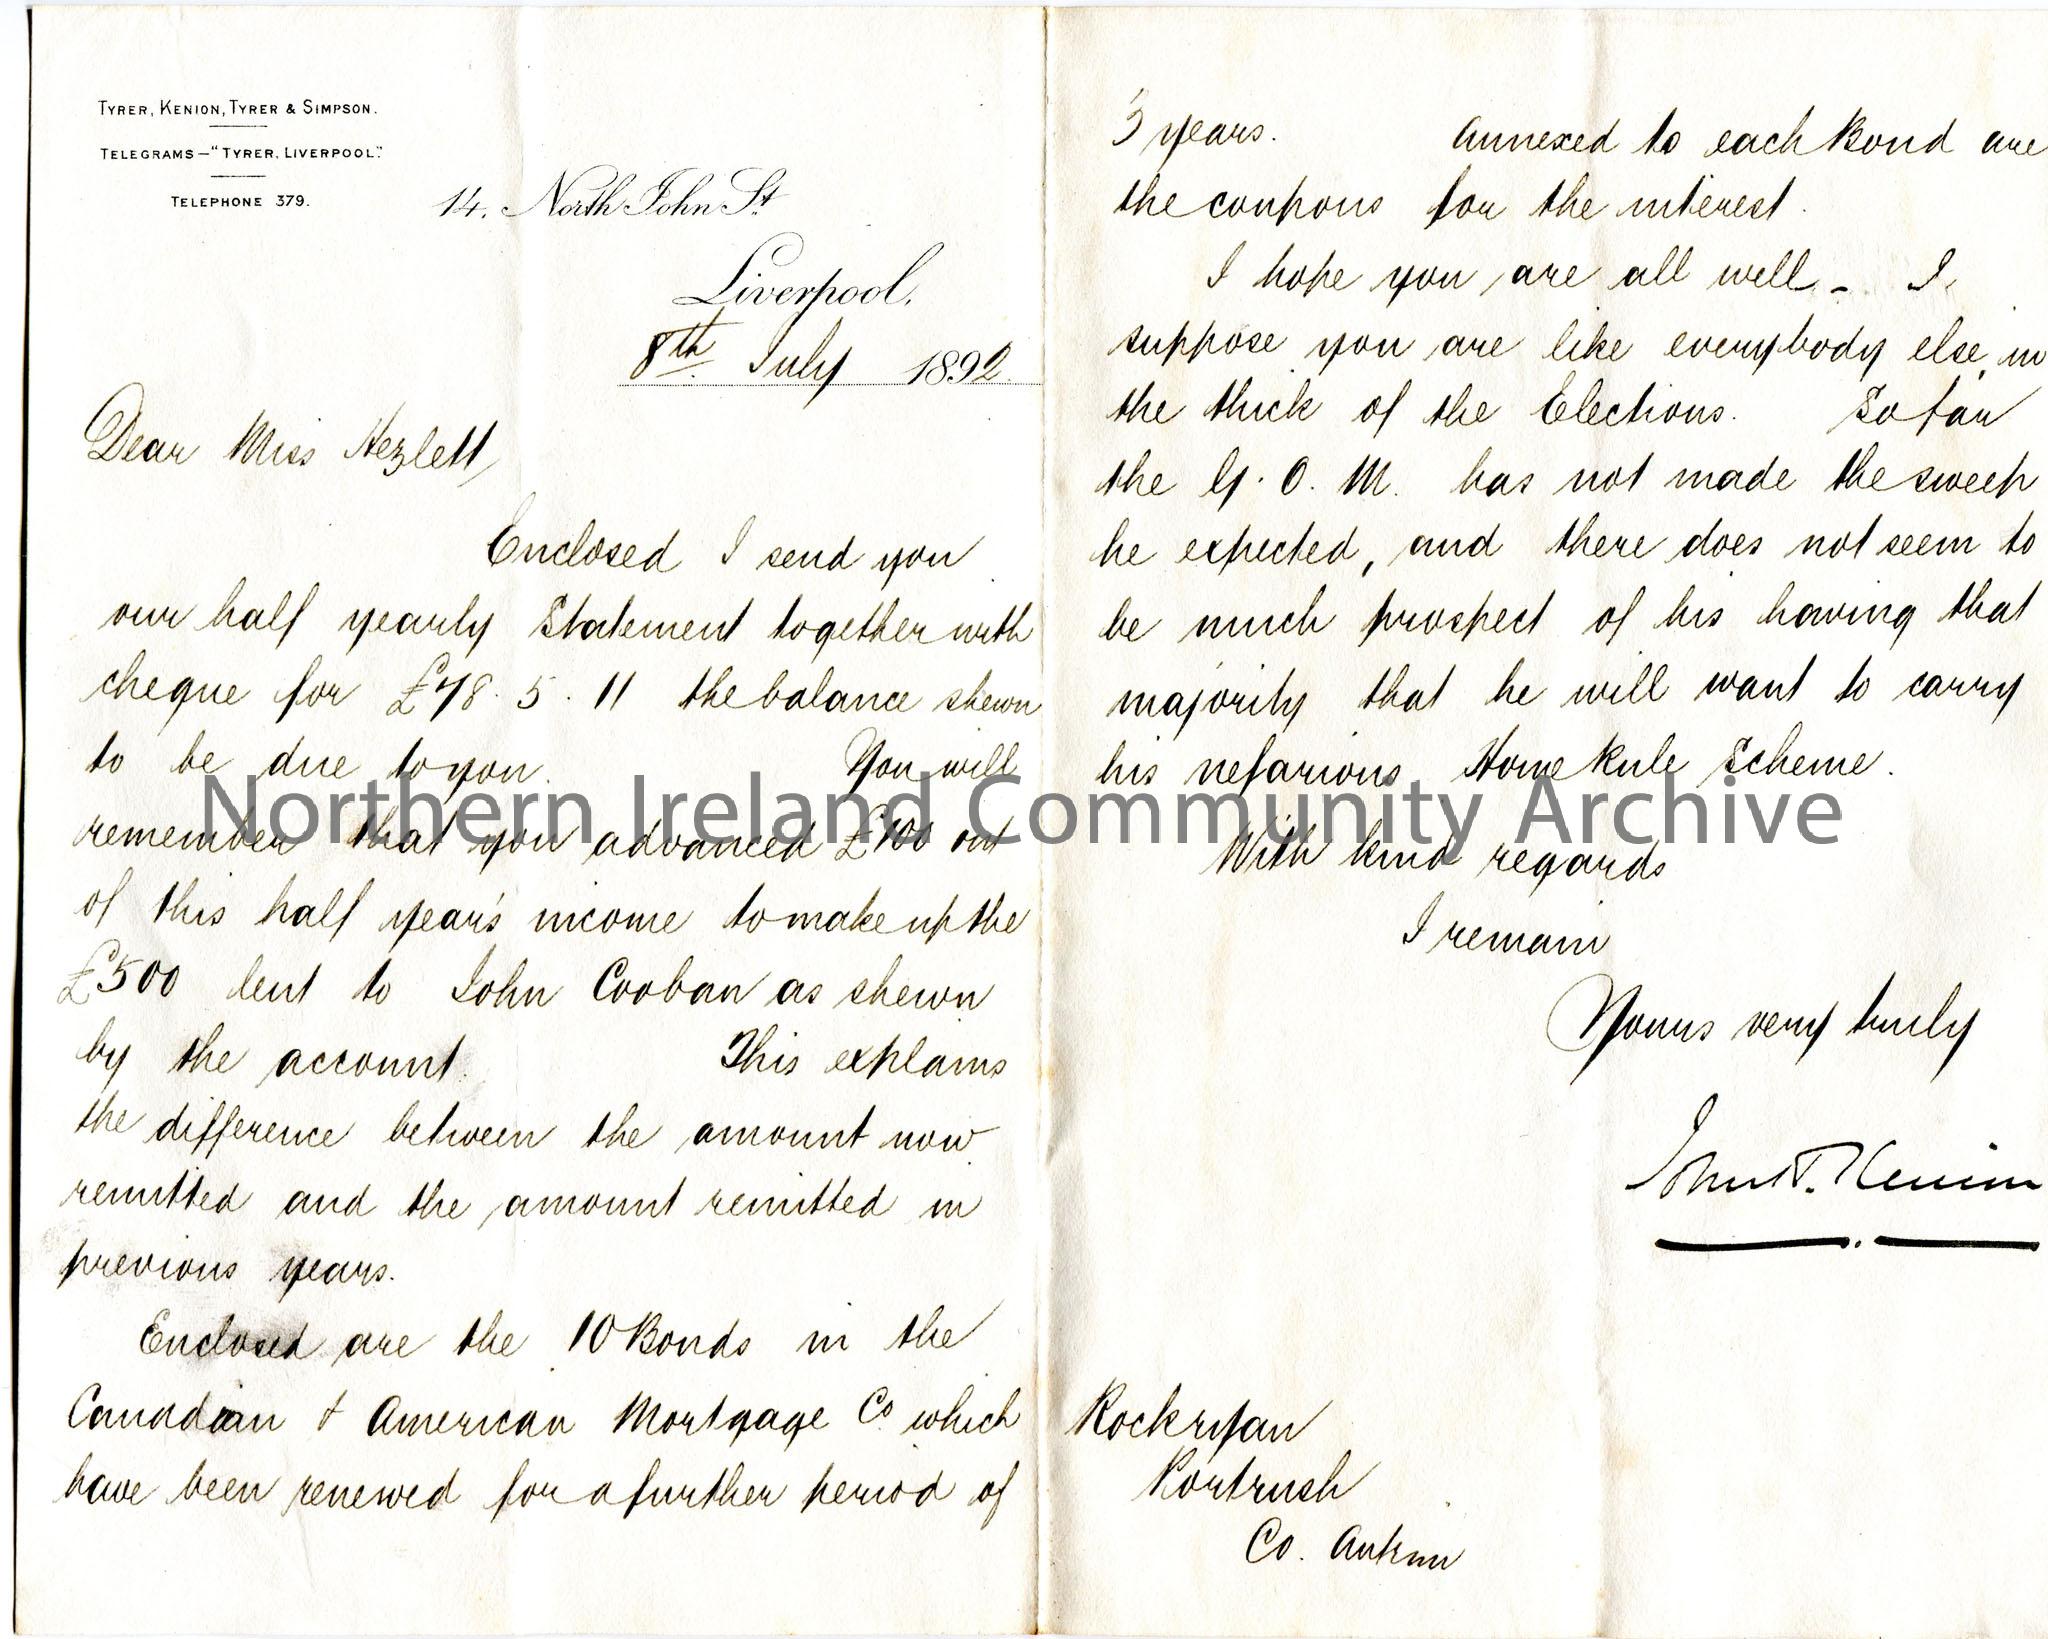 TYRER, KENION, TYRER & SIMPSON.
TELEGRAMS—"TYRER, LIVERPOOL."
TELEPHONE 379.
14, North John St.
Liverpool,
8th July 1892.
Dear Miss Hezlett,
Enclosed I send you
our half yearly Statement together with
cheque for £78. 5. 11 the balance shewn
to be due to you. You will
remember that you advanced £100 out
of this half year's income to make up the
£500 lent to John Cooban as shewn
by the account. This explains
the difference between the amount now
remitted and the amount remitted in
previous years.
Enclosed are the 10 Bonds in the
Canadian & American Mortgage Co. which
have been renewed for a further period of
years. Annexed to each Bond are
the coupons for the interest.
I hope you are all well - I
suppose you are like everybody else, in
the thick of the Elections. So far
the G. O. M. has not made the sweep
he expected, and there does not seem to
be much prospect of his having that
majority that he will want to carry
his nefarious Home Rule Scheme.
With kind regards
I remain
Yours very truly
John T. Kenion
Rockryan
Portrush
Co. Antrim
Northern Ireland Community Archive